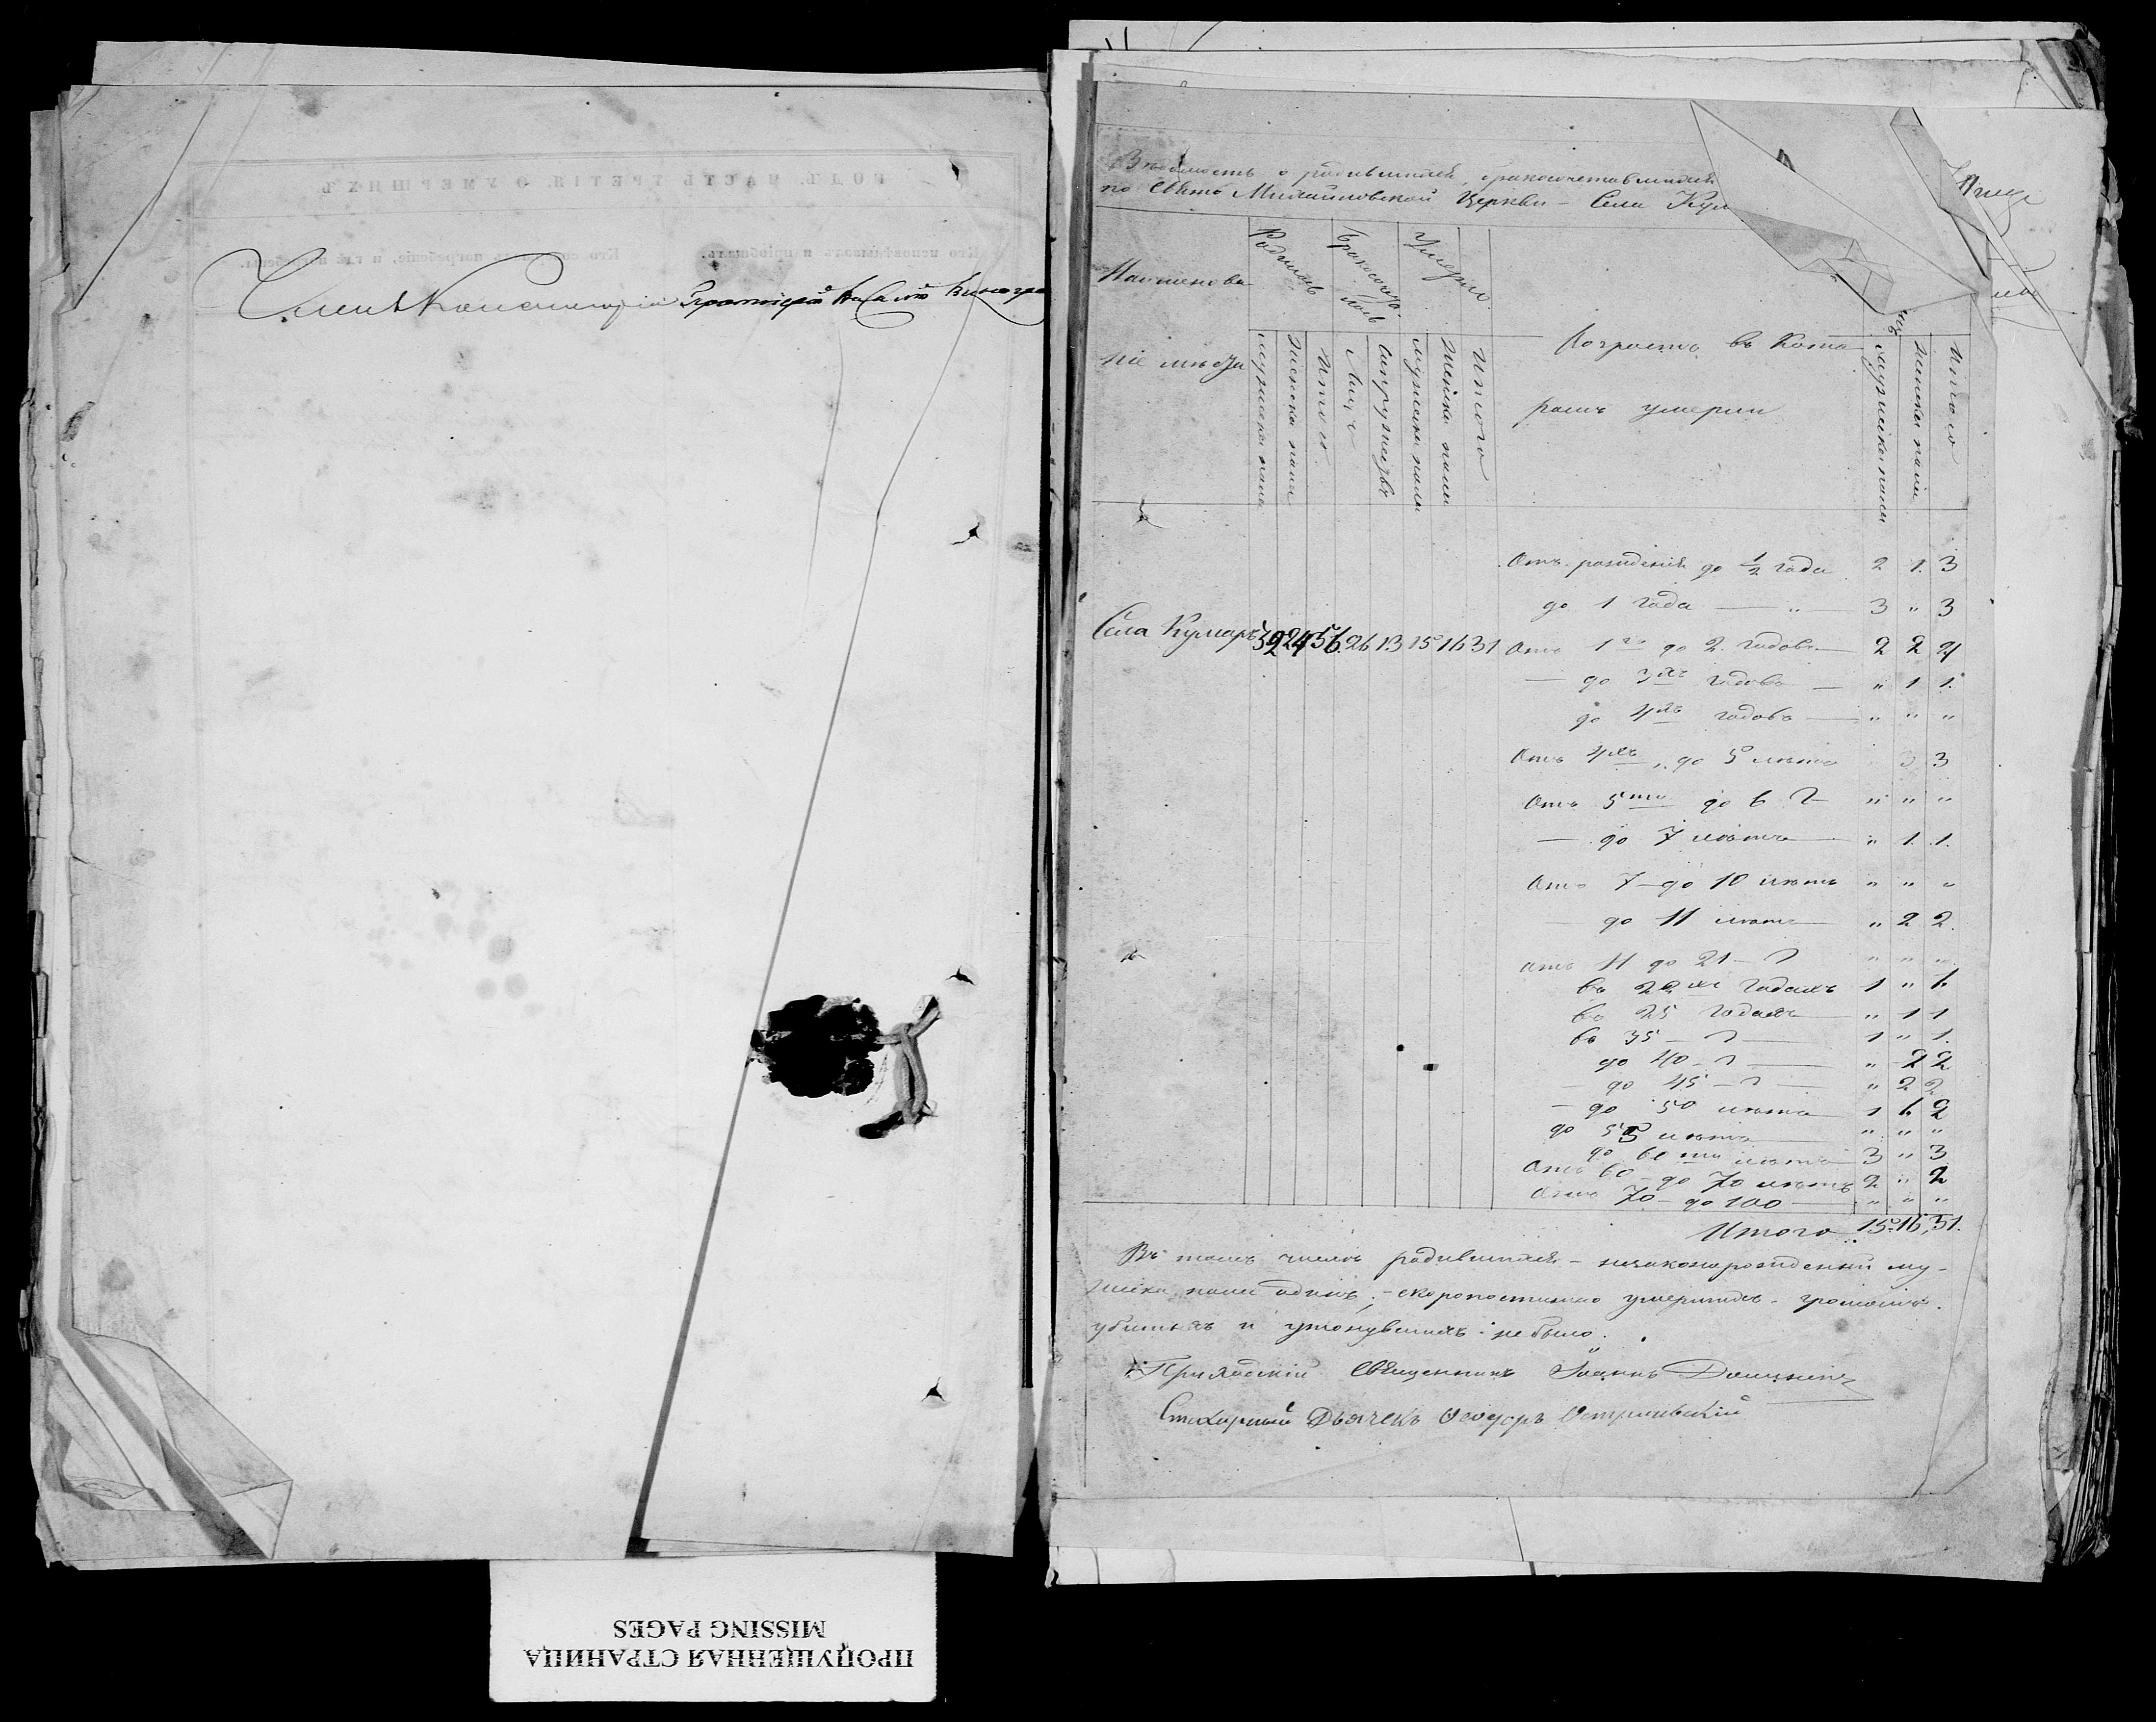 Членъ Консисторіи Протоіерей Василій Виногра
ПРОПУЩЕННАЯ СТРАНИЦА
MISSING PAGES
Вѣдомость о родившихся, бракосочетавшихся
по Свято Михайловской Церкви – Села Кул
Родилось
Бракосочта- лось
Умерло
Наименова-
ніе мѣста
мужеска пола
женска пола
Итого
Лицъ
Супружествъ
мужеска пола
женска пола
Итого
Возрастъ въ кото-
ромъ умерли
мужеска пола
женска пола
Итого
Отъ рожденія до ½ года 2 1. 3
до 1 года — „ — 3 „ 3
Села 32 24 56. 26 13 15 16 31 Отъ 1го до 2. годовъ — 2 2 4
— до 3хъ годовъ — „ 1 1.
до 4хъ годовъ — „ „ „
Отъ 4хъ „ до 5 лѣтъ 3 3
Отъ 5ти до 6 „ „ „
— до 7 лѣтъ — „ 1. 1.
Отъ 7 – до 10 лѣтъ „ „ „
— до 11 лѣтъ — „ 2 2.
отъ 11 до 21 – „ „ „
въ 22хъ годахъ 1 „ 1.
въ 25 годахъ — „ 1 1
въ 35 — 1 „ 1.
до 40 — „ 2 2
до 45 — „ 2 2
– до 50 лѣтъ — 1 1. 2
до 55 лѣтъ — „ „ „
до 60ти лѣтъ — 3 „ 3
Отъ 60 – до 70 лѣтъ 2 „ 2
Отъ 70 – до 100 — „ „ „
Итого 15. 16, 31.
Въ томъ числѣ родившихся – незаконорожденный му-
жеска пола одинъ; – скоропостижно умершихъ – громомъ
убитыхъ и утонувшихъ не было.
Приходскій Священникъ Іоаннъ
Стихарный Дьячекъ Ѳеодоръ